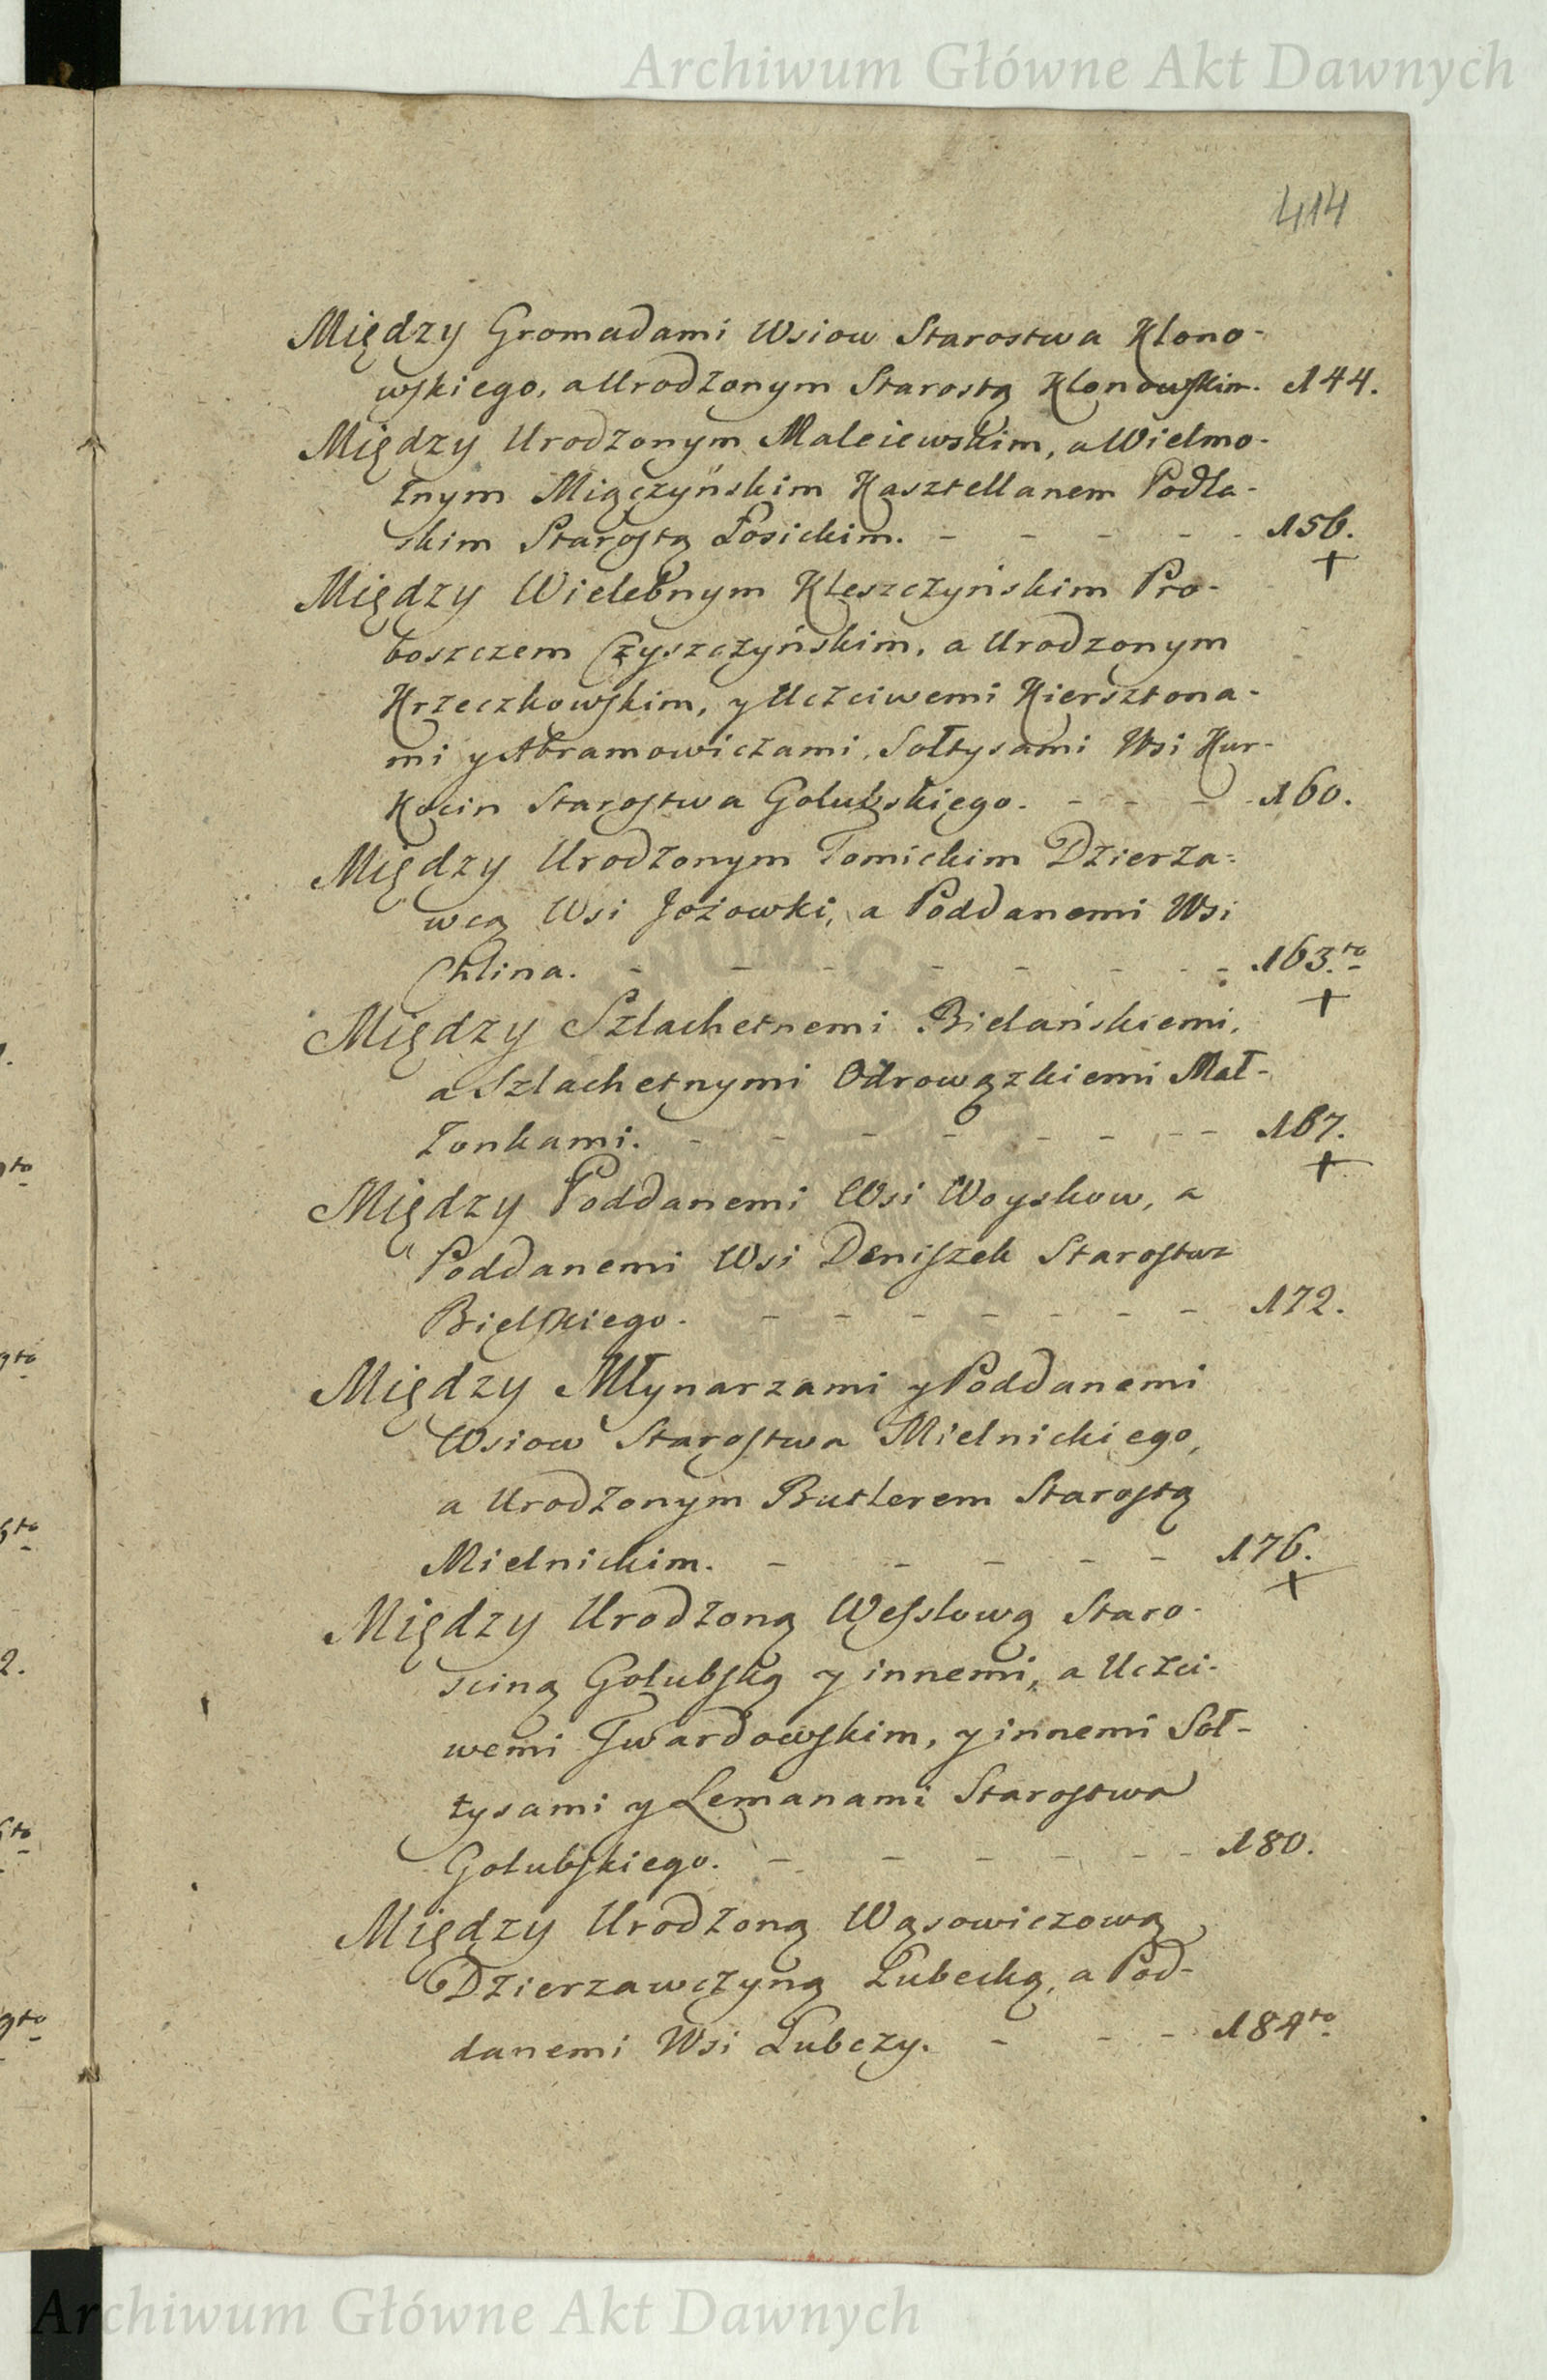 Archiwum Główne Akt Dawnych
414
Między Gromadami Wsiow Starostwa Klono-
wskiego, a Urodzonym Starostą Klonowskim. 144.
Między Urodzonym Maleiewskim, a Wielmo-
żnym Miączyńskim Kasztellanem Podla-
skim Starostą Łosickim. - - - - - 156.
+
Między Wielebnym Kleszczyńskim Pro-
boszczem Czyszczyńskim, a Urodzonym
Krzeczkowskim, y Uczciwemi Kiersztona-
mi y Abramowiczami, Sołtysami Wsi Kur-
kocin Starostwa Golubskiego. - - - - 160.
Między Urodzonym Tomickim Dzierza-
wcą Wsi Jożowki, a Poddanemi Wsi
Chlina. - - - - - - - - 163.to
+
Między Szlachetnemi Bielańskiemi,
a Szlachetnymi Odrowązkiemi Mał-
żonkami. - - - - - - - - 167.
+
Między Poddanemi Wsi Woyskow, a
Poddanemi Wsi Deniszek Starostwa
Bielskiego. - - - - - - - 172.
Między Młynarzami y Poddanemi
Wsiow Starostwa Mielnickiego,
a Urodzonym Butlerem Starostą
Mielnickim. - - - - - 176.
+
Między Urodzoną Węsslową Staro-
sciną Golubską y innemi, a Uczci-
wemi Twardowskim, y innemi Soł-
tysami y Lemanami Starostwa
Golubskiego. - - - - - - 180.
Między Urodzoną Wąsowiczową
Dzierzawczyną Łubecką, a Pod-
danemi Wsi Łubczy. - - - 184to
Archiwum Główne Akt Dawnych